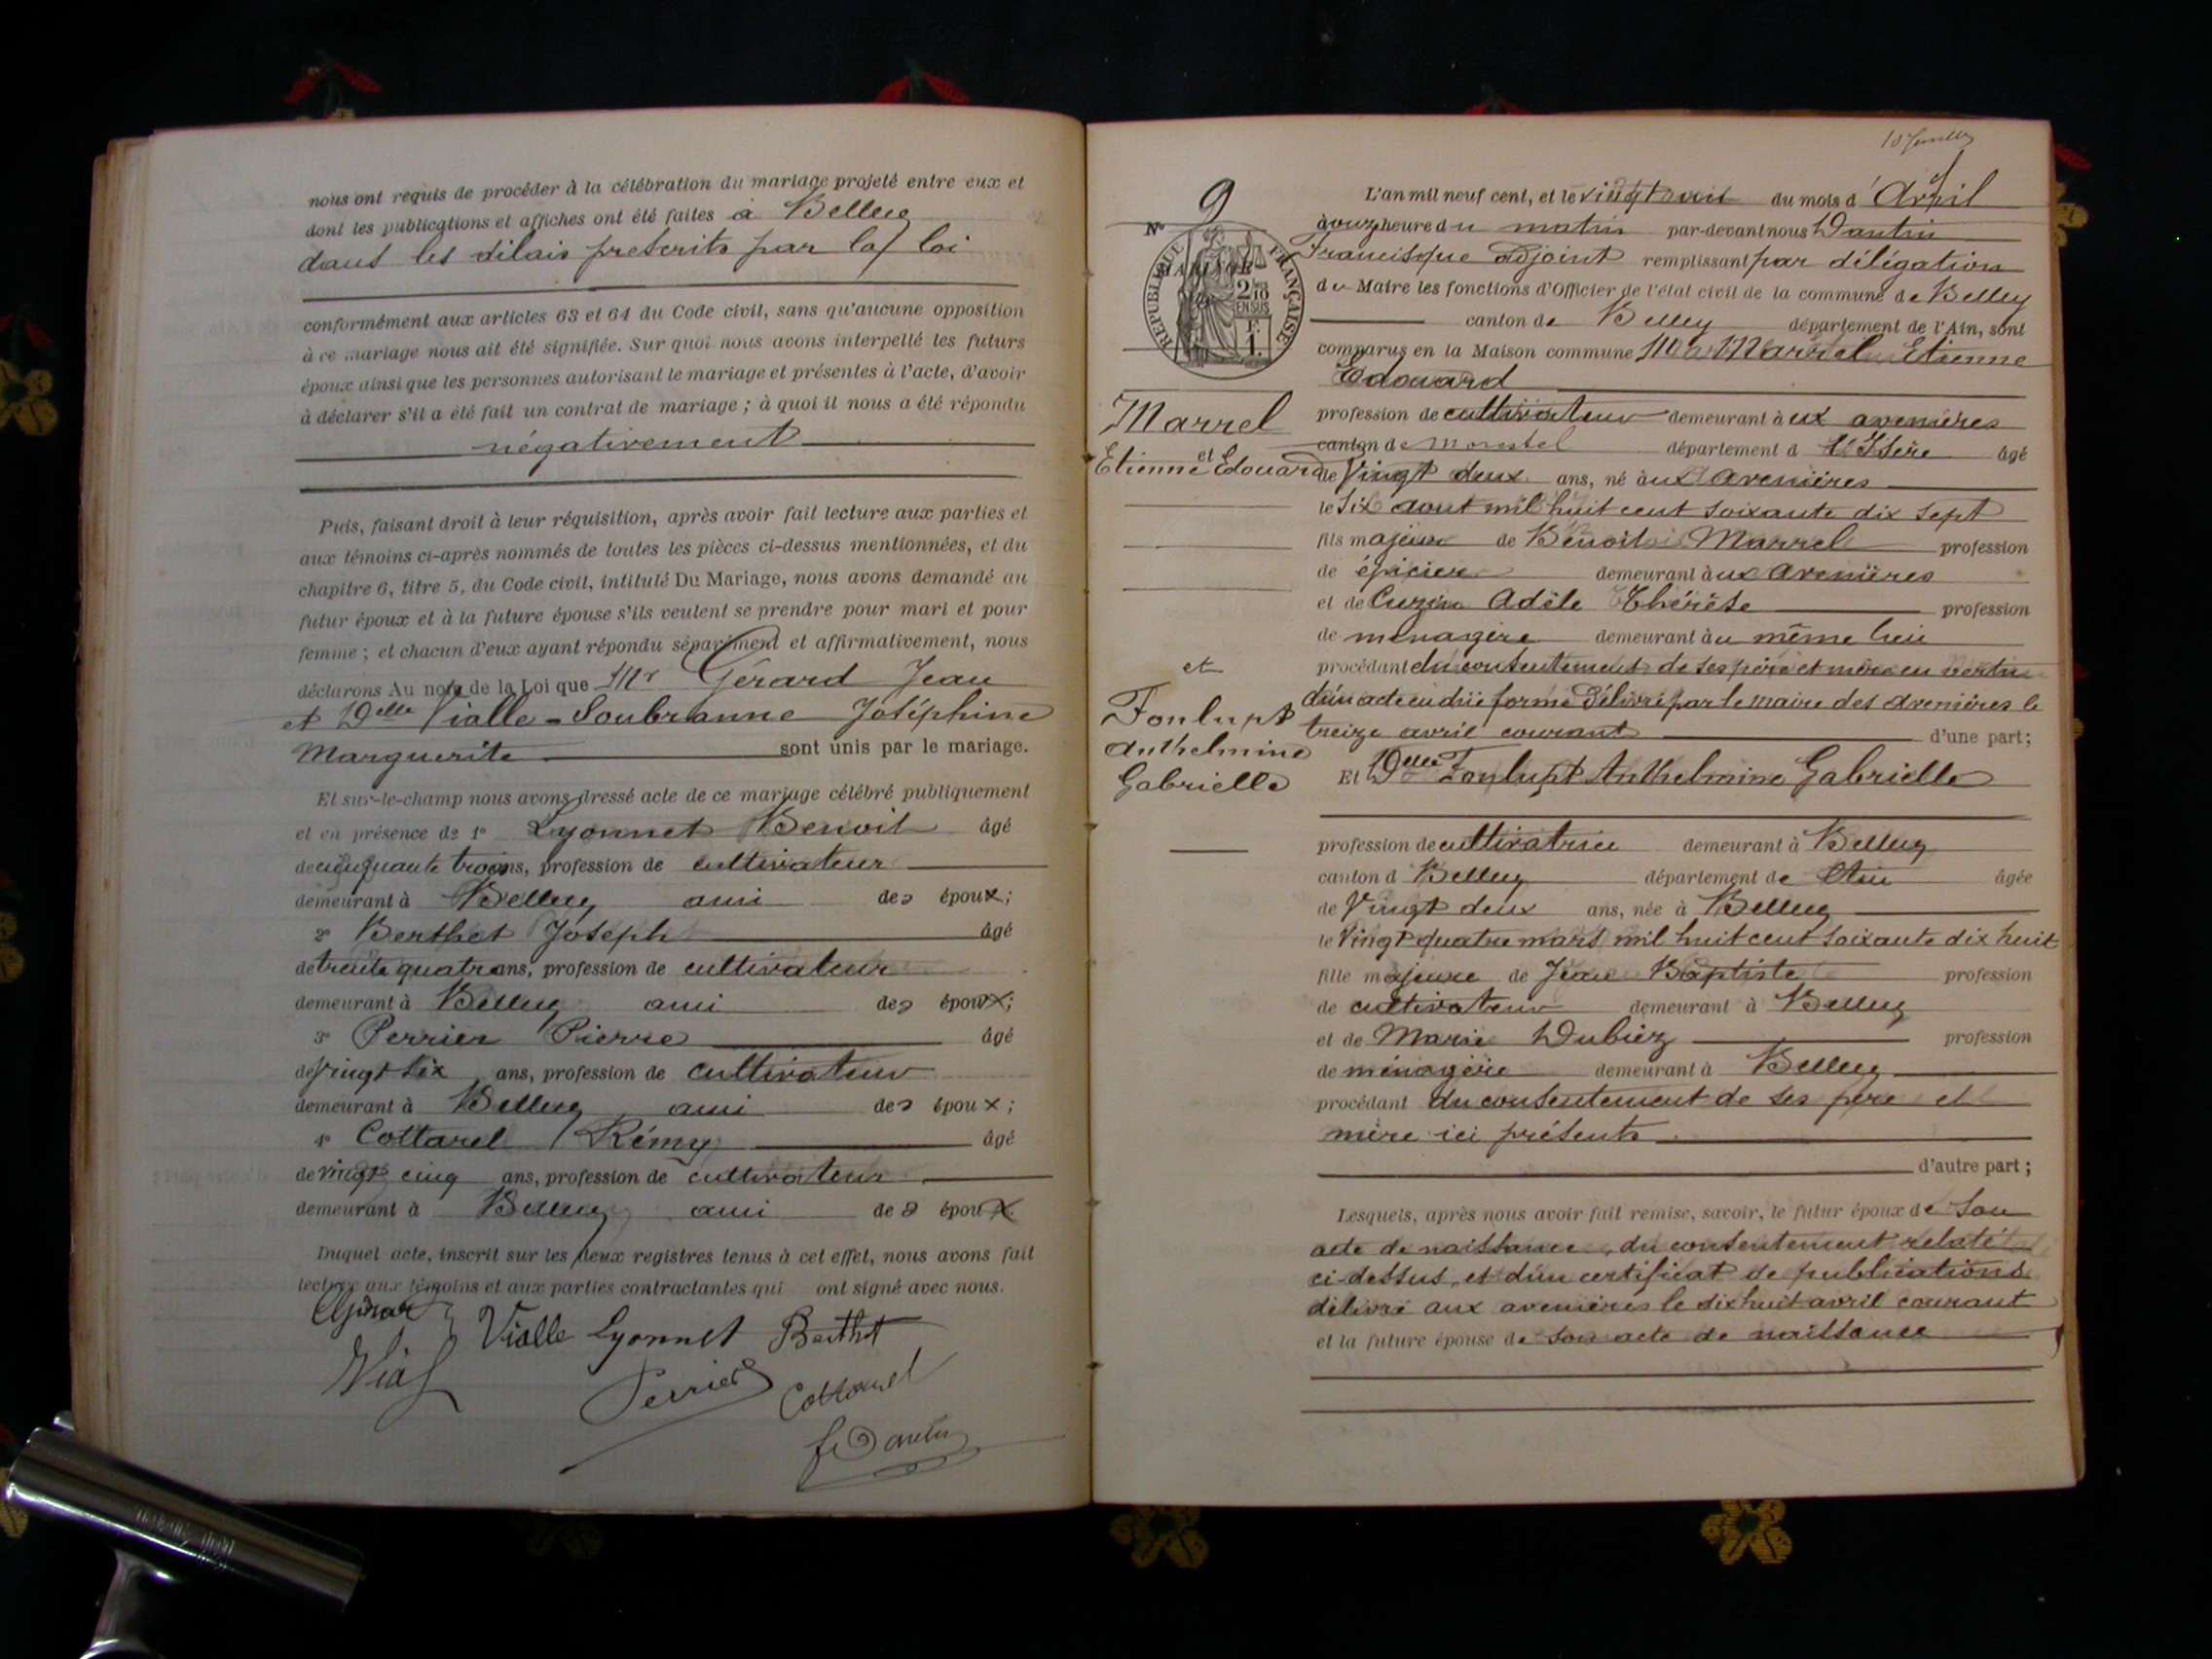 nous ont requis de procéder à la célébration du mariage projeté entre eux et
dont les publications et affiches ont été faites à Belley
dans les délais prescrits par la loi
conformément aux articles 63 et 64 du Code civil, sans qu'aucune opposition
à ce mariage nous ait été signifiée. Sur quoi nous avons interpellé les futurs
époux ainsi que les personnes autorisant le mariage et présentes à l'acte, d'avoir
à déclarer s'il a été fait un contrat de mariage ; à quoi il nous a été répondu
négativement
Puis, faisant droit à leur réquisition, après avoir fait lecture aux parties et
aux témoins ci-après nommés de toutes les pièces ci-dessus mentionnées, et du
chapitre 6, titre 5, du Code civil, intitulé Du Mariage, nous avons demandé au
futur époux et à la future épouse s'ils veulent se prendre pour mari et pour
femme ; et chacun d'eux ayant répondu séparément et affirmativement, nous
déclarons Au nom de la Loi que Mr Gérard Jean
et Delle Vialle-Soubranne Joséphine
Marguerite sont unis par le mariage.
Et sur-le-champ nous avons dressé acte de ce mariage célébré publiquement
et en présence de 1° Lyonnet Benoit âgé
de cinquante trois ans, profession de cultivateur
demeurant à Belley ami des époux ;
2° Berthet Joseph âgé
de trente quatre ans, profession de cultivateur
demeurant à Belley ami des époux ;
3° Perrier Pierre âgé
de vingt six ans, profession de cultivateur
demeurant à Belley ami des époux ;
4° Cottarel Rémy âgé
de vingt cinq ans, profession de cultivateur
demeurant à Belley ami des époux
Duquel acte, inscrit sur les deux registres tenus à cet effet, nous avons fait
lecture aux témoins et aux parties contractantes qui ont signé avec nous.
Vialle Lyonnet Berthet
Perrier Cottarel
Dantin
9
N°
REPUBLIQUE FRANÇAISE
MARIAGE
2/10
EN SUS
1 F.
Marrel
Etienne Edouard
et
et
Foulupt
Anthelmine
Gabrielle
L'an mil neuf cent, et le vingt un du mois d'Avril
à onze heure du matin par-devant nous Dantin
Francisque Adjoint remplissant par délégation
du Maire les fonctions d'Officier de l'état civil de la commune de Belley
canton de Belley département de l'Ain, sont
comparus en la Maison commune Mr Marrel Etienne
Edouard
profession de cultivateur demeurant à ux avenières
canton de Morestel département d l'Isère âgé
de Vingt deux ans, né à ux Avenières
le Six aout mil huit cent soixante dix sept
fils majeur de Benoit Marrel profession
de épicier demeurant à ux Avenières
et de Cuzin Adèle Thérèse profession
de ménagère demeurant à u même lieu
procédant du consentement de ses père et mère en vertu
d'un acte en due forme délivré par le maire des Avenières le
treize avril courant d'une part ;
Et Delle Foulupt Anthelmine Gabrielle
profession de cultivatrice demeurant à Belley
canton d Belley département de Ain âgée
de Vingt deux ans, née à Belley
le Vingt quatre mars mil huit cent soixante dix huit
fille majeure de Jean Baptiste profession
de cultivateur demeurant à Belley
et de Marie Dubiez profession
de ménagère demeurant à Belley
procédant du consentement de ses père et
mère ici présents
d'autre part ;
Lesquels, après nous avoir fait remise, savoir, le futur époux de son
acte de naissance, du consentement relaté
ci-dessus, et d'un certificat de publications
délivré aux avenières le dix huit avril courant
et la future épouse de son acte de naissance